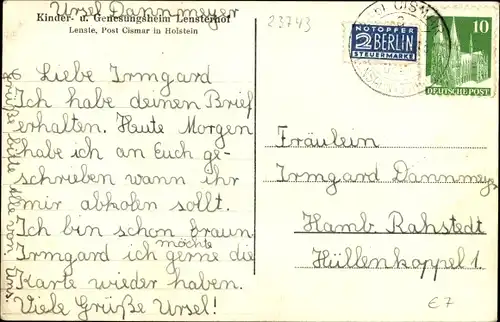 Ursel Dannmeyer
Kinder- u. Genesungsheim Lensterhof
Lenste, Post Cismar in Holstein
Liebe Irmgard
Ich habe deinen Brief
erhalten. Heute Morgen
habe ich an Euch ge-
schrieben wann ihr
mir abholen sollt.
Ich bin schon braun
Irmgard ich möchte gerne die
Karte wieder haben.
Viele Grüße Ursel!
Grüße bitte Alle von
Uns.
23743
CISMAR
NOTOPFER
2 BERLIN
STEUERMARKE
10
DEUTSCHE POST
Fräulein
Irmgard Dannmeyer
Hamb. Rahstedt
Hüllenkoppel 1.
€7